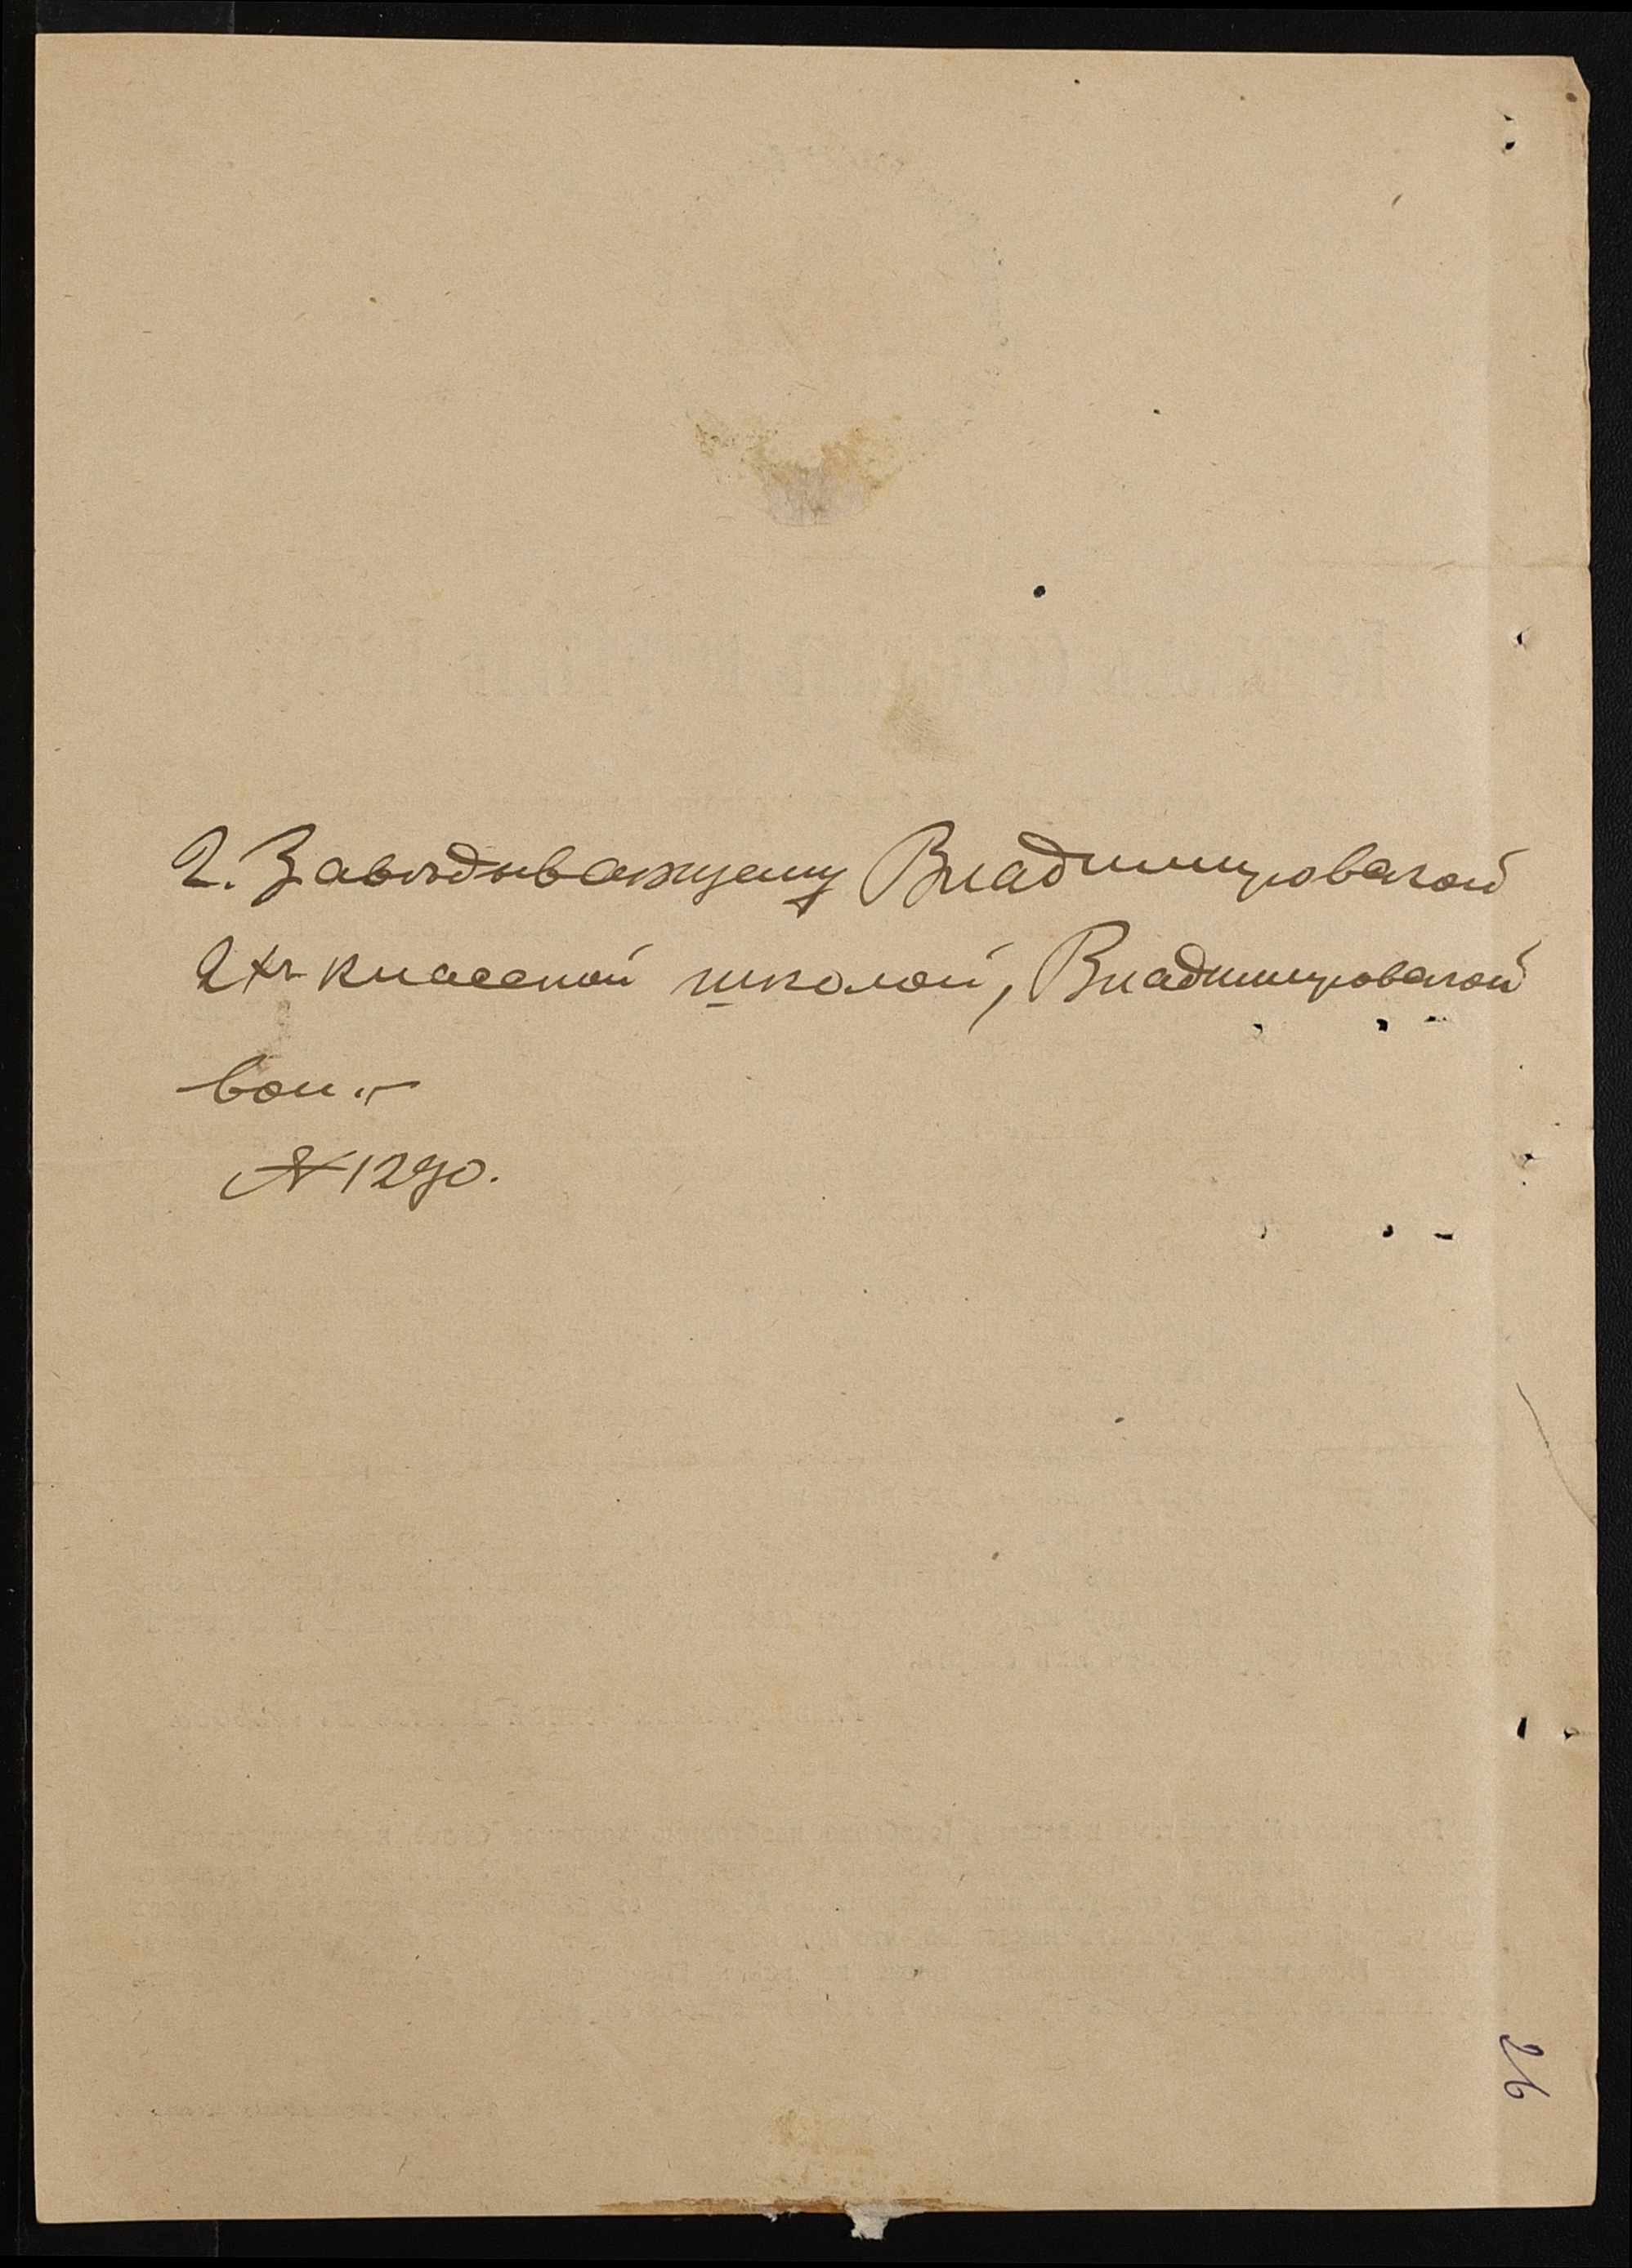 Г. Завѣдывающему Владимировской
2хъ классной школой, Владимировской
вол.
№ 1290.
26